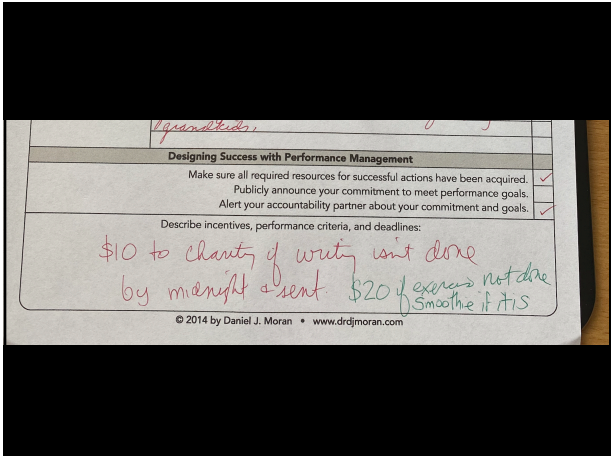 grandkids.
Designing Success with Performance Management
Make sure all required resources for successful actions have been acquired. ✓
Publicly announce your commitment to meet performance goals.
Alert your accountability partner about your commitment and goals. ✓
Describe incentives, performance criteria, and deadlines:
$10 to charity if writing isn't done
by midnight & sent. $20 if exercise not done
Smoothie if it is
© 2014 by Daniel J. Moran • www.drdjmoran.com